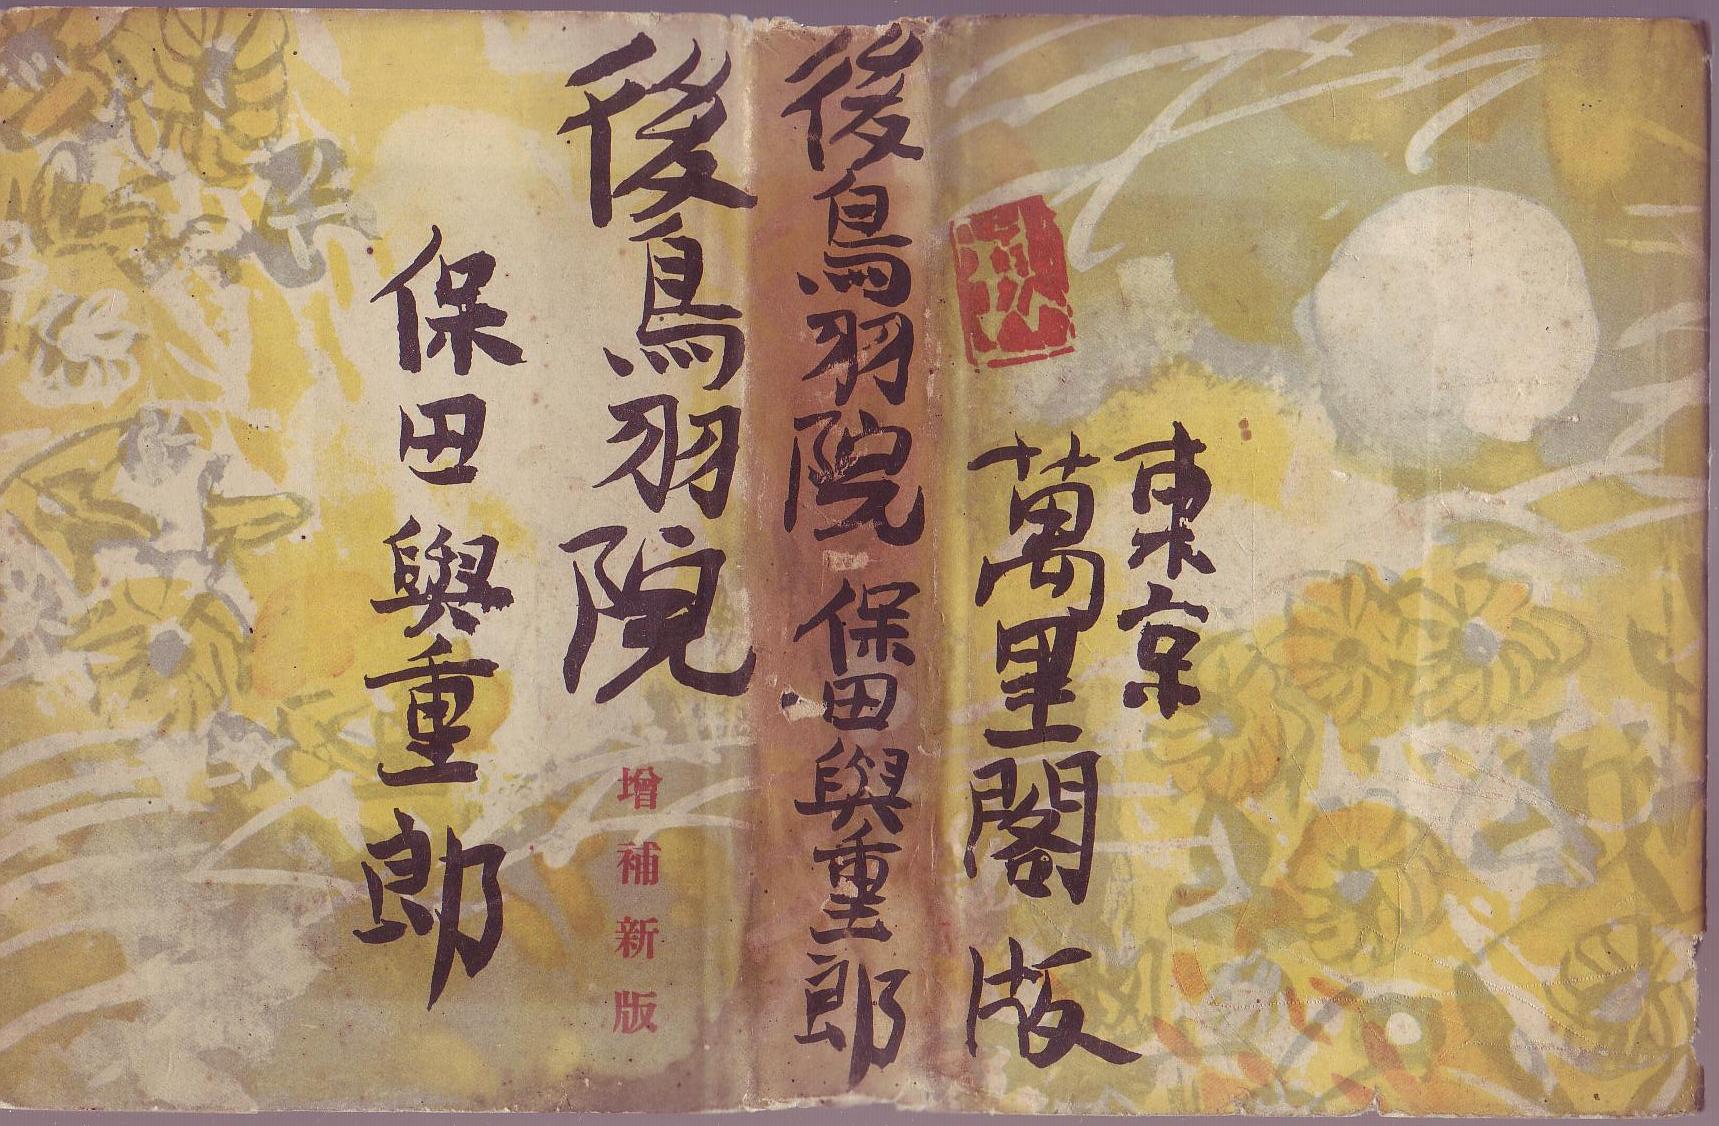 後鳥羽院
保田與重郎
増補新版
後鳥羽院 保田與重郎
東京
萬里閣版